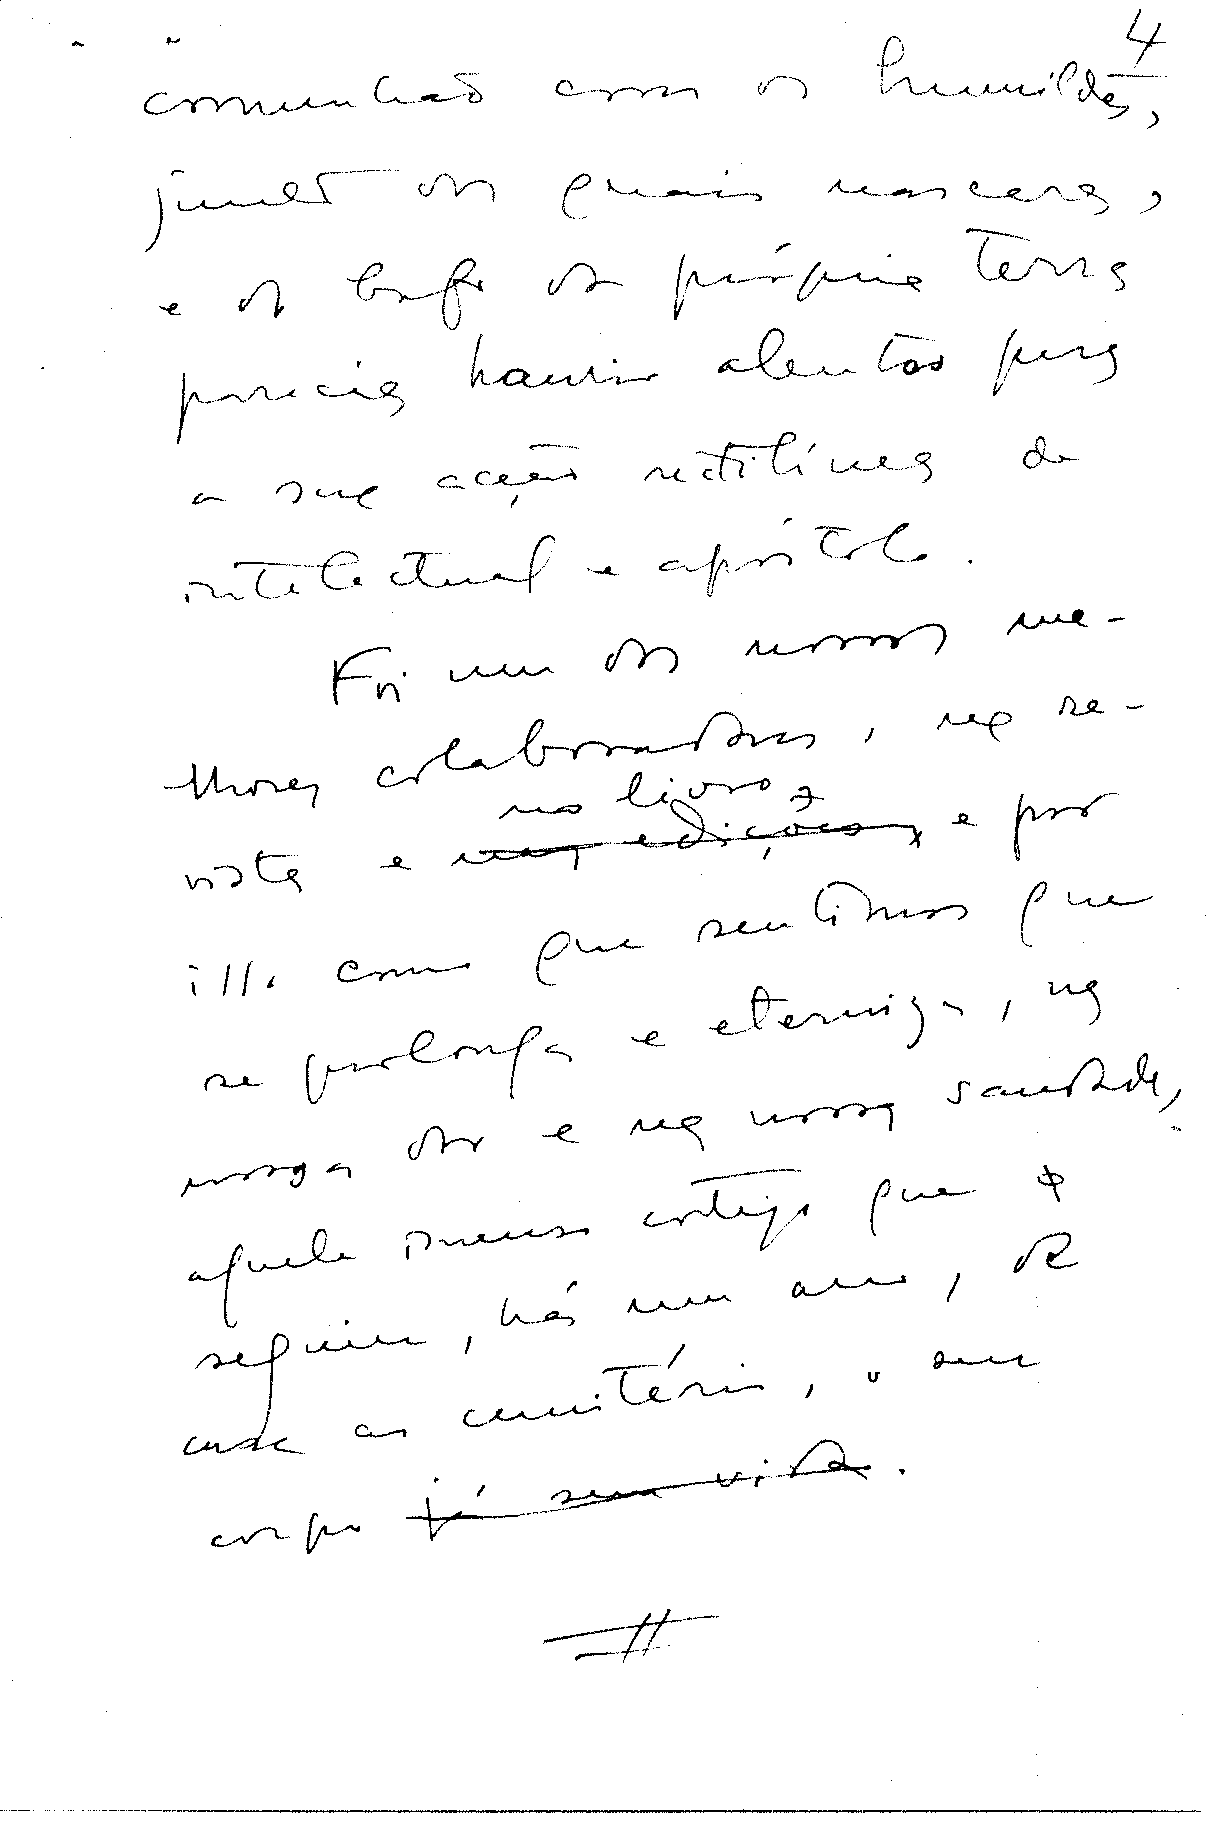 4
comunhão com os humildes,
junto dos quais nascera,
e do bafo da própria terra
parecia haurir alentos para
a sua acção rectilínea de
intelectual e apóstolo.
Foi um dos nossos me-
lhores colaboradores, na re-
no livro,
vista e nas edições, e por
isso como que sentimos que
se prolonga e eterniza, na
nossa dor e na nossa saudade,
aquele imenso cortejo que
seguiu, há um ano, de
casa ao cemitério, o seu
corpo já sem vida.